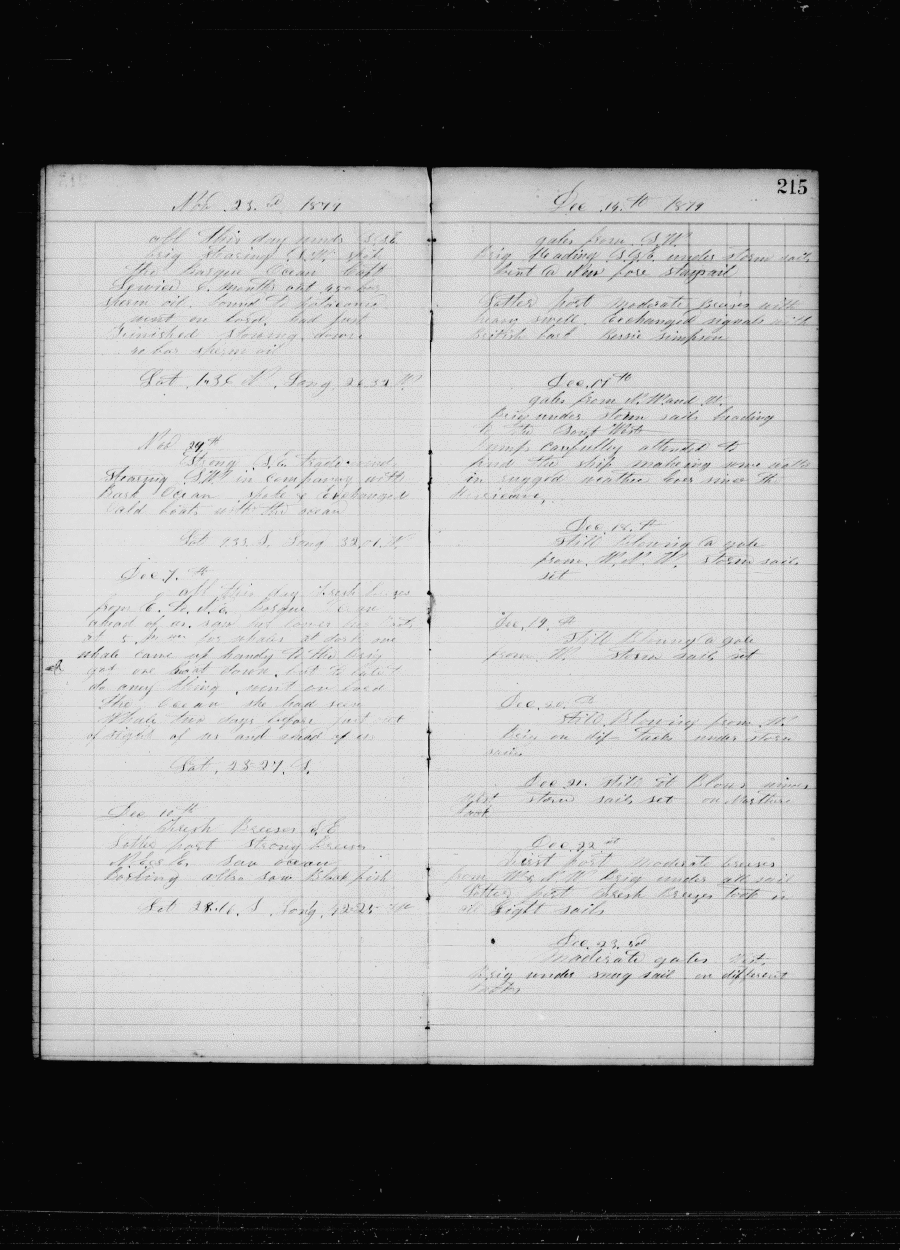 215
Nov 23. d 1879
all this day winds S.S.E.
brig stearing S.W. spok
the Barque Ocean Capt
months out 450 bar
sperm oil. bound to
went on bord. had just
Finished stowing down
bar sperm oil
Lat 1.36 N. Long 26.32 W.
Nov 24th
Strong S.E. trade winds
Stearing S.W. in company with
Bark Ocean spoke & Exchanged
boats with the ocean
Lat 2.33 S. Long
Dec 7. th
all this day Fresh
from E. to N.E. barque
ahead of us saw lower
at 5 for whales at dark one
whale came up handy to the brig
got one boat down. but to late t
do aney thing. went on bord
the Ocean she had seen
whale two days before just out
of sight of us and ahead of us
Lat. 23-27. S.
Dec 10th
Fresh Breeses S.E
Latter part Strong Breeses
saw ocean
allso saw Black fish
Lat 28-16. S Long. 42-25
Dec 14. th 1879
gales from S.W.
brig Heading S.S.E. under storm sails
bent a New fore staysail
Latter part moderate breeses with
heavy swell Exchanged signals with
British bark Bessie Simpson
Dec. 17 th
gales from N.W and W.
brig under storm sails heading
to the Sout West
pump carefully attended to
find the ship makeing some water
in rugged weather ever since the
Dec. 18. th
Still Blowing a gale
from W.N.W. Storm sails
set
Dec. 19. th
Still Blowing a gale
from W. Storm sails set
Dec. 20. th
still Blowing from W
brig on dif tacks under storm
sails
Dec 21. still it Blows
West storm sails set on
tack
Dec. 22
First part moderate breeses
from W & N.W Brig under all sail
Latter part Fresh Breeses took in
all Light sails
Dec. 23. rd
Moderate gales West.
Brig under snug sail on different
tacks